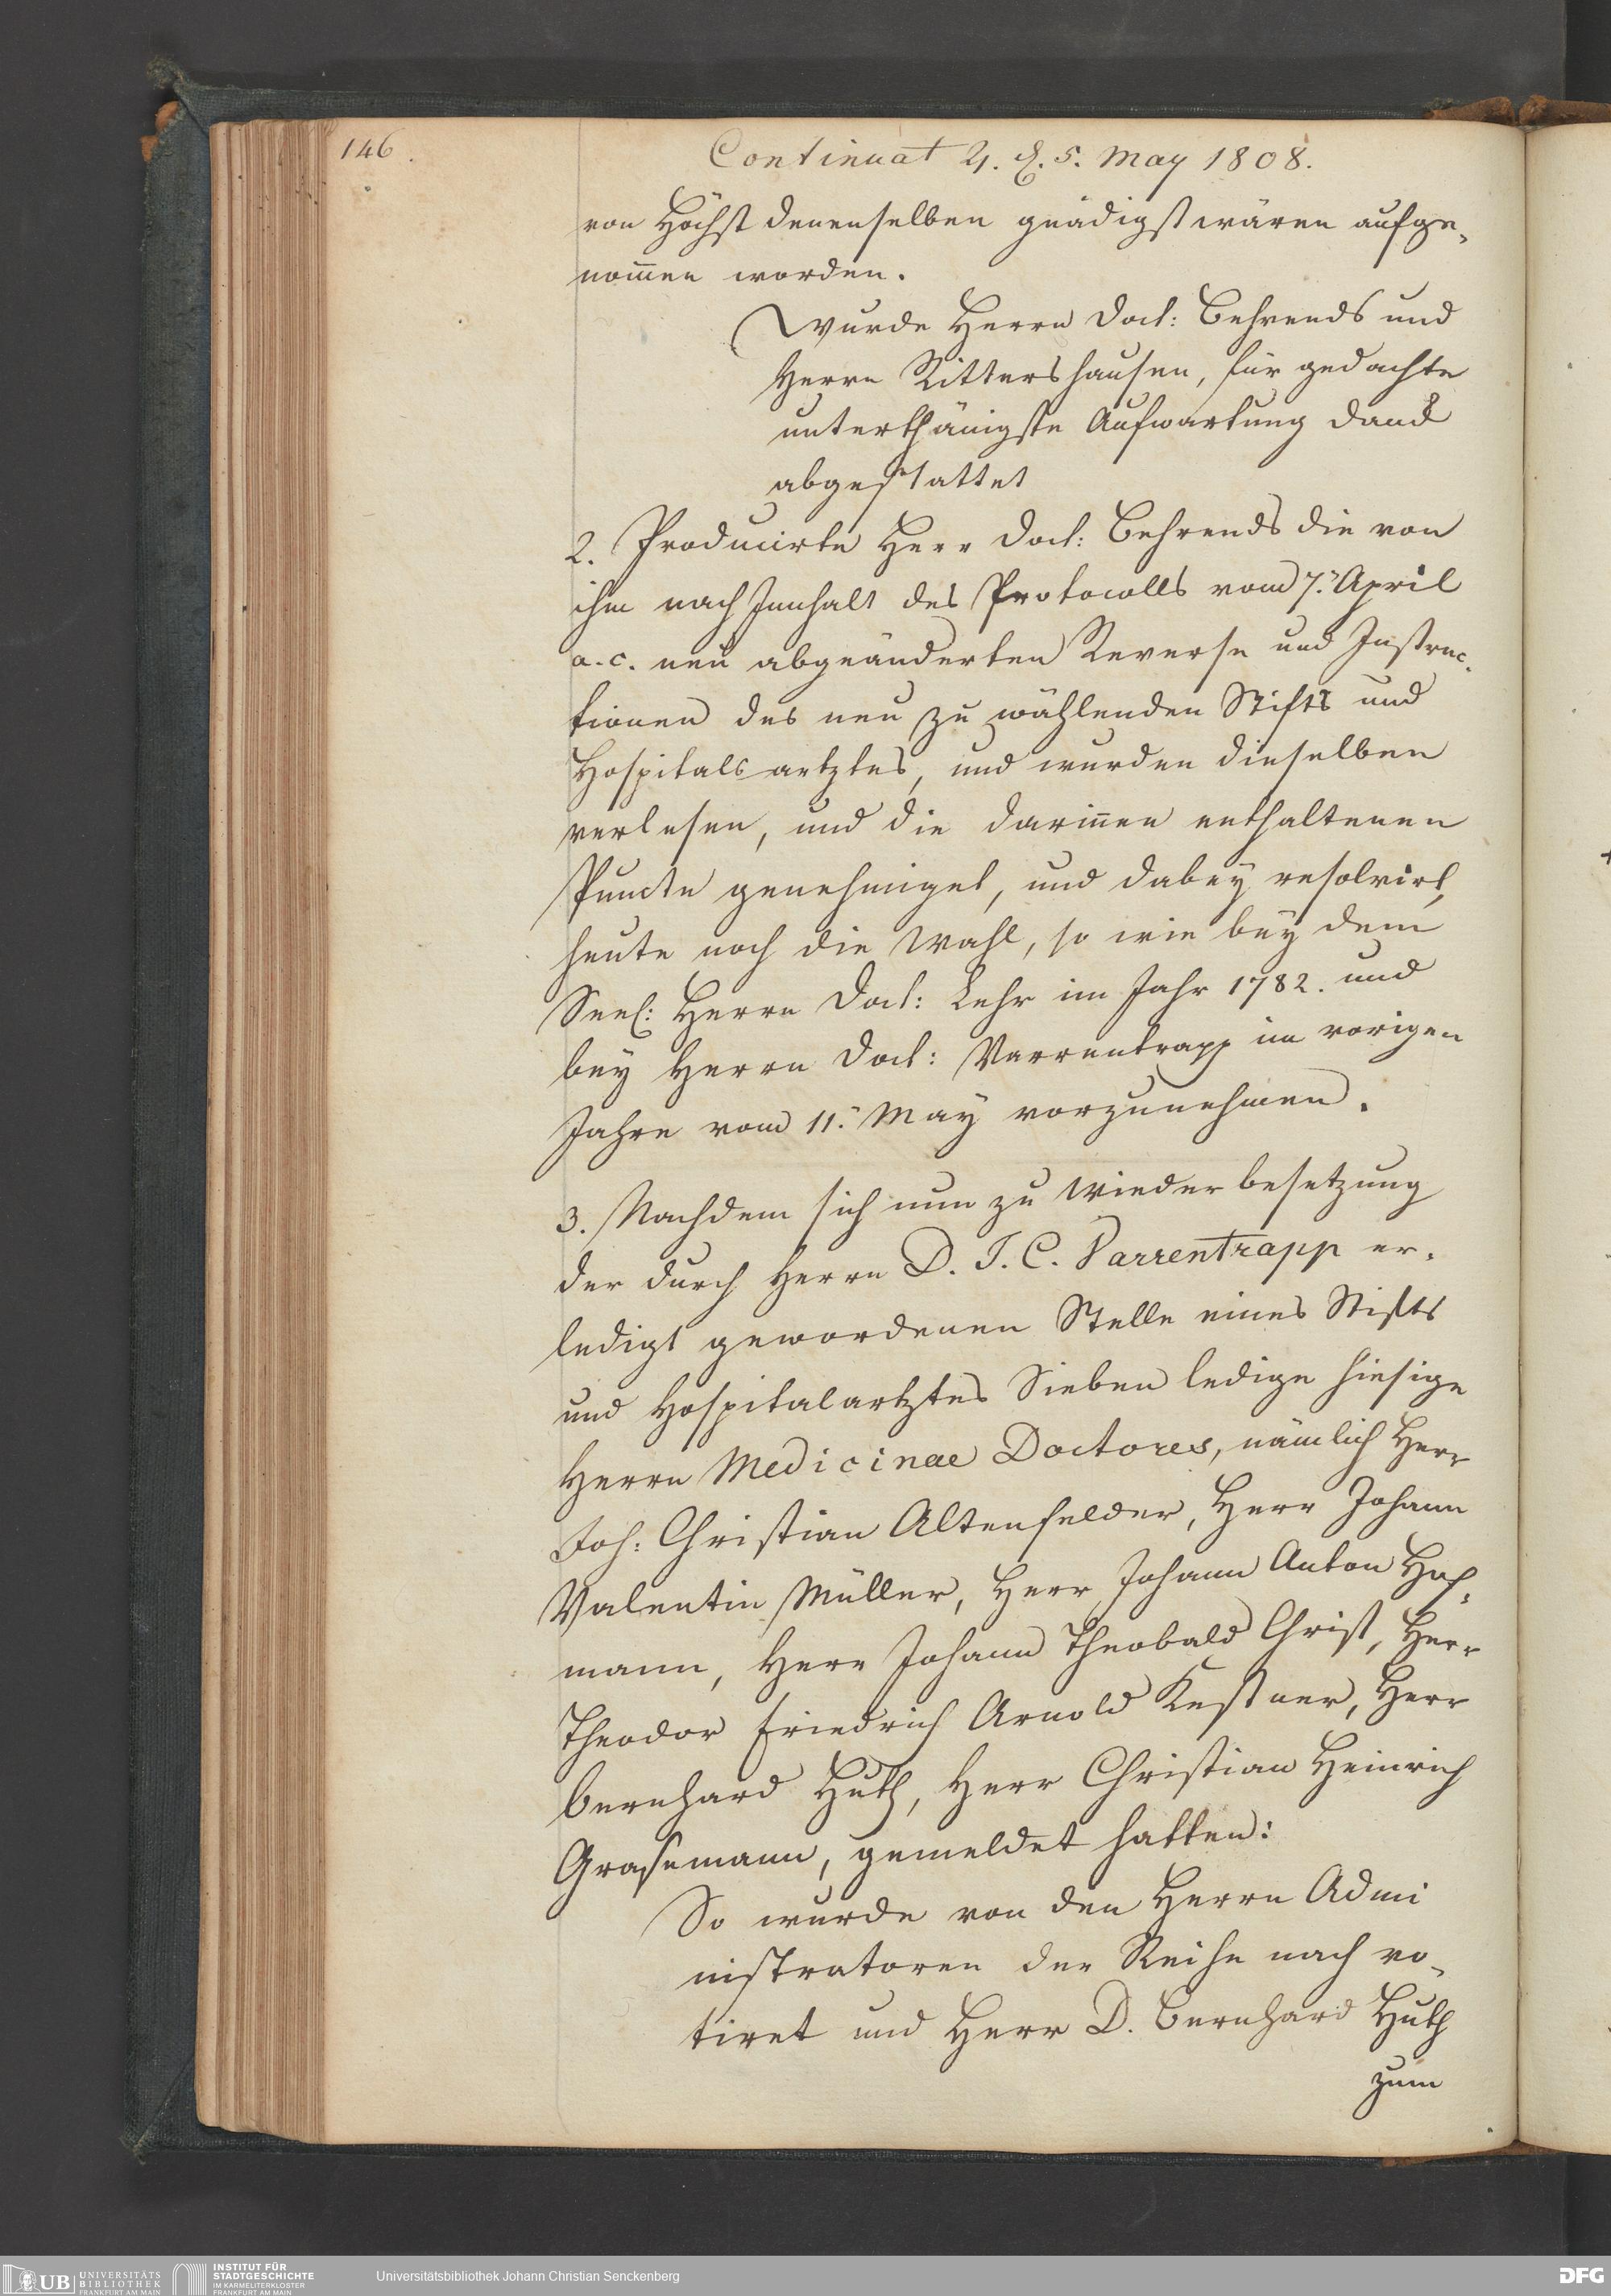 146.
Continuat 4. d. 5. May 1808.
von Höchst denenselben gnädigst wären aufge-
nom̅en worden.
Wurde Herrn Doct: Behrends und
Herrn Rittershausen, für gedachte
unterthänigste Aufwartung danck
abgestattet
2. Producirte Herr Doct: Behrends die von
ihm nach Innhalt des Protocolls vom 7. April
a. c. neü abgeänderten Reverse und Instruc-
tionen des neu zu wählenden Stifts und
Hospitals artztes, und wurden dieselben
verlesen, und die darin̅en enthaltenen
Puncte genehmiget, und dabey resolvirt,
heute noch die Wahl, so wie bey dem
Seel: Herrn Doct: Lehr im Jahr 1782. und
bey Herrn Doct: Varrentrapp im vorigen
Jahre vom 11. May vorzunehmen.
3. Nachdem sich nun zu Wieder besetzung
der durch Herrn D. J. C. Varrentrapp er-
ledigt gewordenen Stelle eines Stifts
und Hospitalartztes Sieben ledige hiesige
Herrn Medicinae Doctores, nämlich Herr
Joh: Christian Altenfelder, Herr Johann
Valentin Müller, Herr Johann Anton Hof-
mann, Herr Johann Theobald Christ, Herr
Theodor Friedrich Arnold Kestner, Herr
Bernhard Huth, Herr Christian Heinrich
Grasemann, gemeldet hatten:
So wurde von den Herrn Admi
nistratoren der Reihe nach vo-
tiret und Herr D. Bernhard Huth
zum
UB UNIVERSITÄTS
BIBLIOTHEK
FRANKFURT AM MAIN
INSTITUT FÜR
STADTGESCHICHTE
IM KARMELITERKLOSTER
FRANKFURT AM MAIN
Universitätsbibliothek Johann Christian Senckenberg
DFG